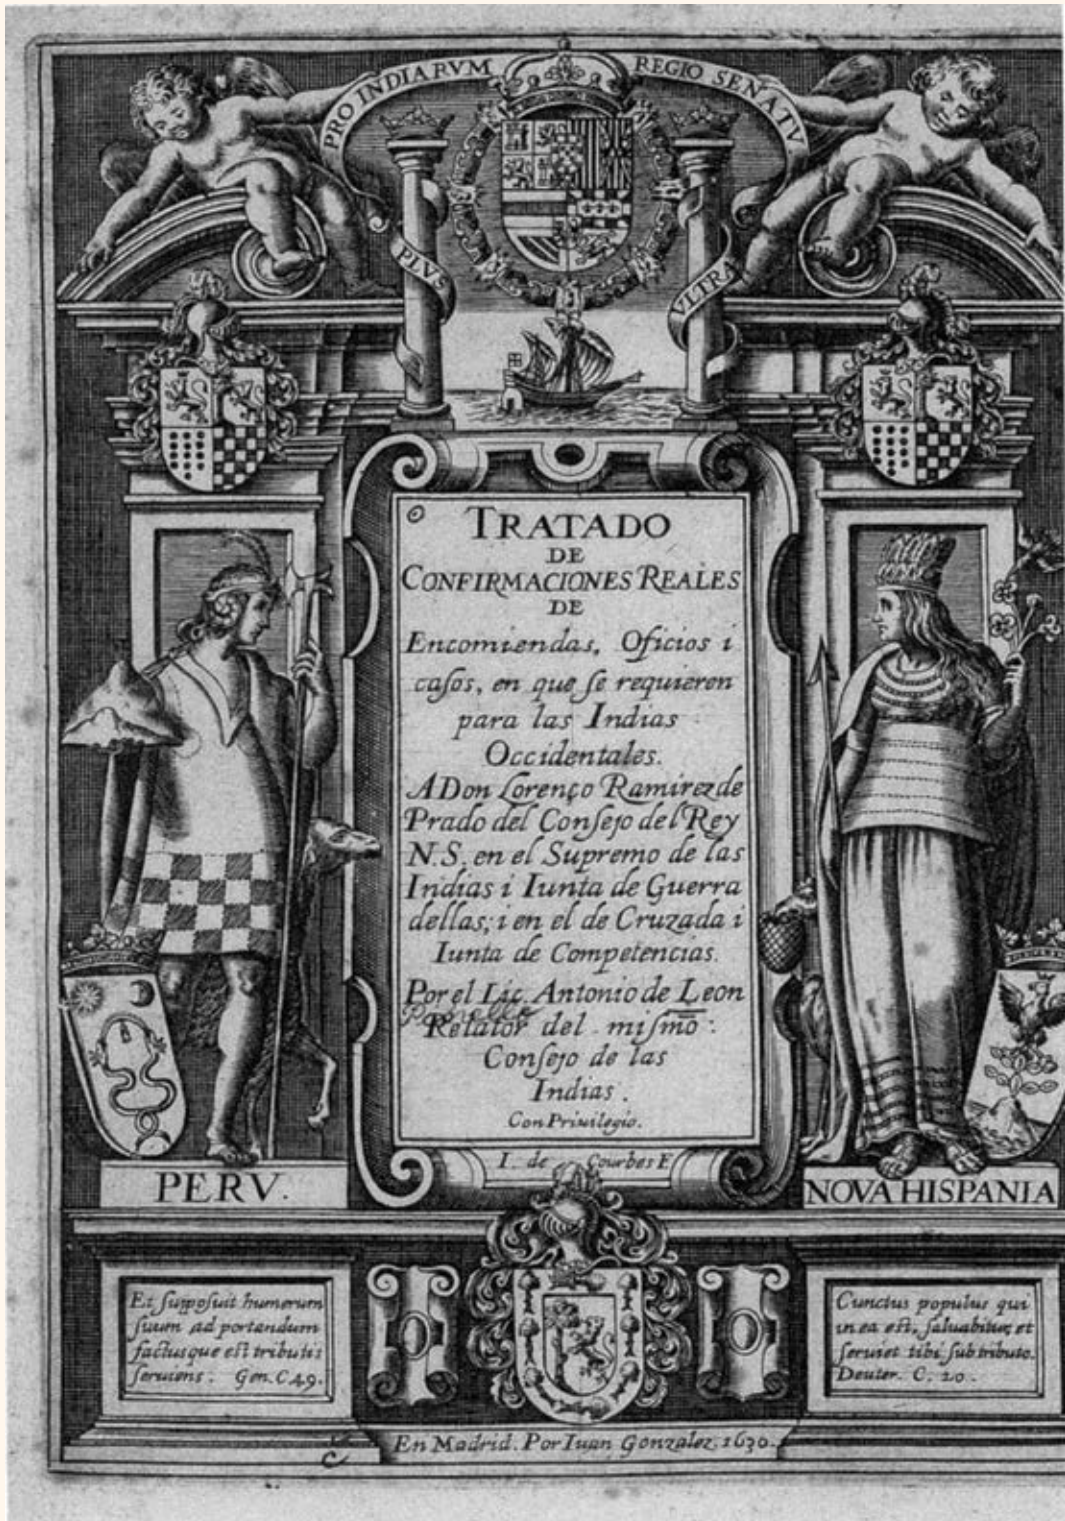 PRO INDIARVM REGIO SENATV
PLVS VLTRA
TRATADO
DE
CONFIRMACIONES REALES
DE
Encomiendas, Oficios i
casos, en que se requieren
para las Indias
Occidentales.
A Don Lorenço Ramirez de
Prado del Consejo del Rey
N.S. en el Supremo de las
Indias i Iunta de Guerra
dellas; i en el de Cruzada i
Iunta de Competencias.
Por el Lic. Antonio de Leon
Relator del mismo
Consejo de las
Indias.
Con Privilegio.
I. de Courbes F.
PERV.
NOVA HISPANIA
Et supposuit humerum
suum ad portandum
factusque est tributis
serviens. Gen. C. 49.
Cunctus populus qui
in ea est, salvabitur, et
serviet tibi sub tributo.
Deuter. C. 20.
En Madrid. Por Iuan Gonzalez. 1630.